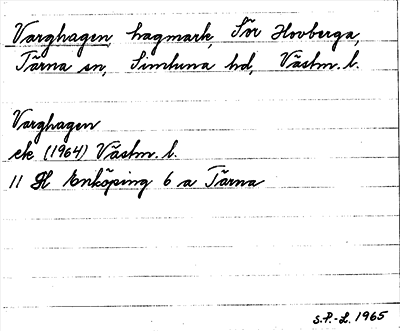 Varghagen, hagmark, Sör Hovberga,
Tärna sn, Simtuna hd, Västm. l.
Varghagen
ek (1964) Västm. l.
11 H Enköping 6 a Tärna
S.P.-L. 1965